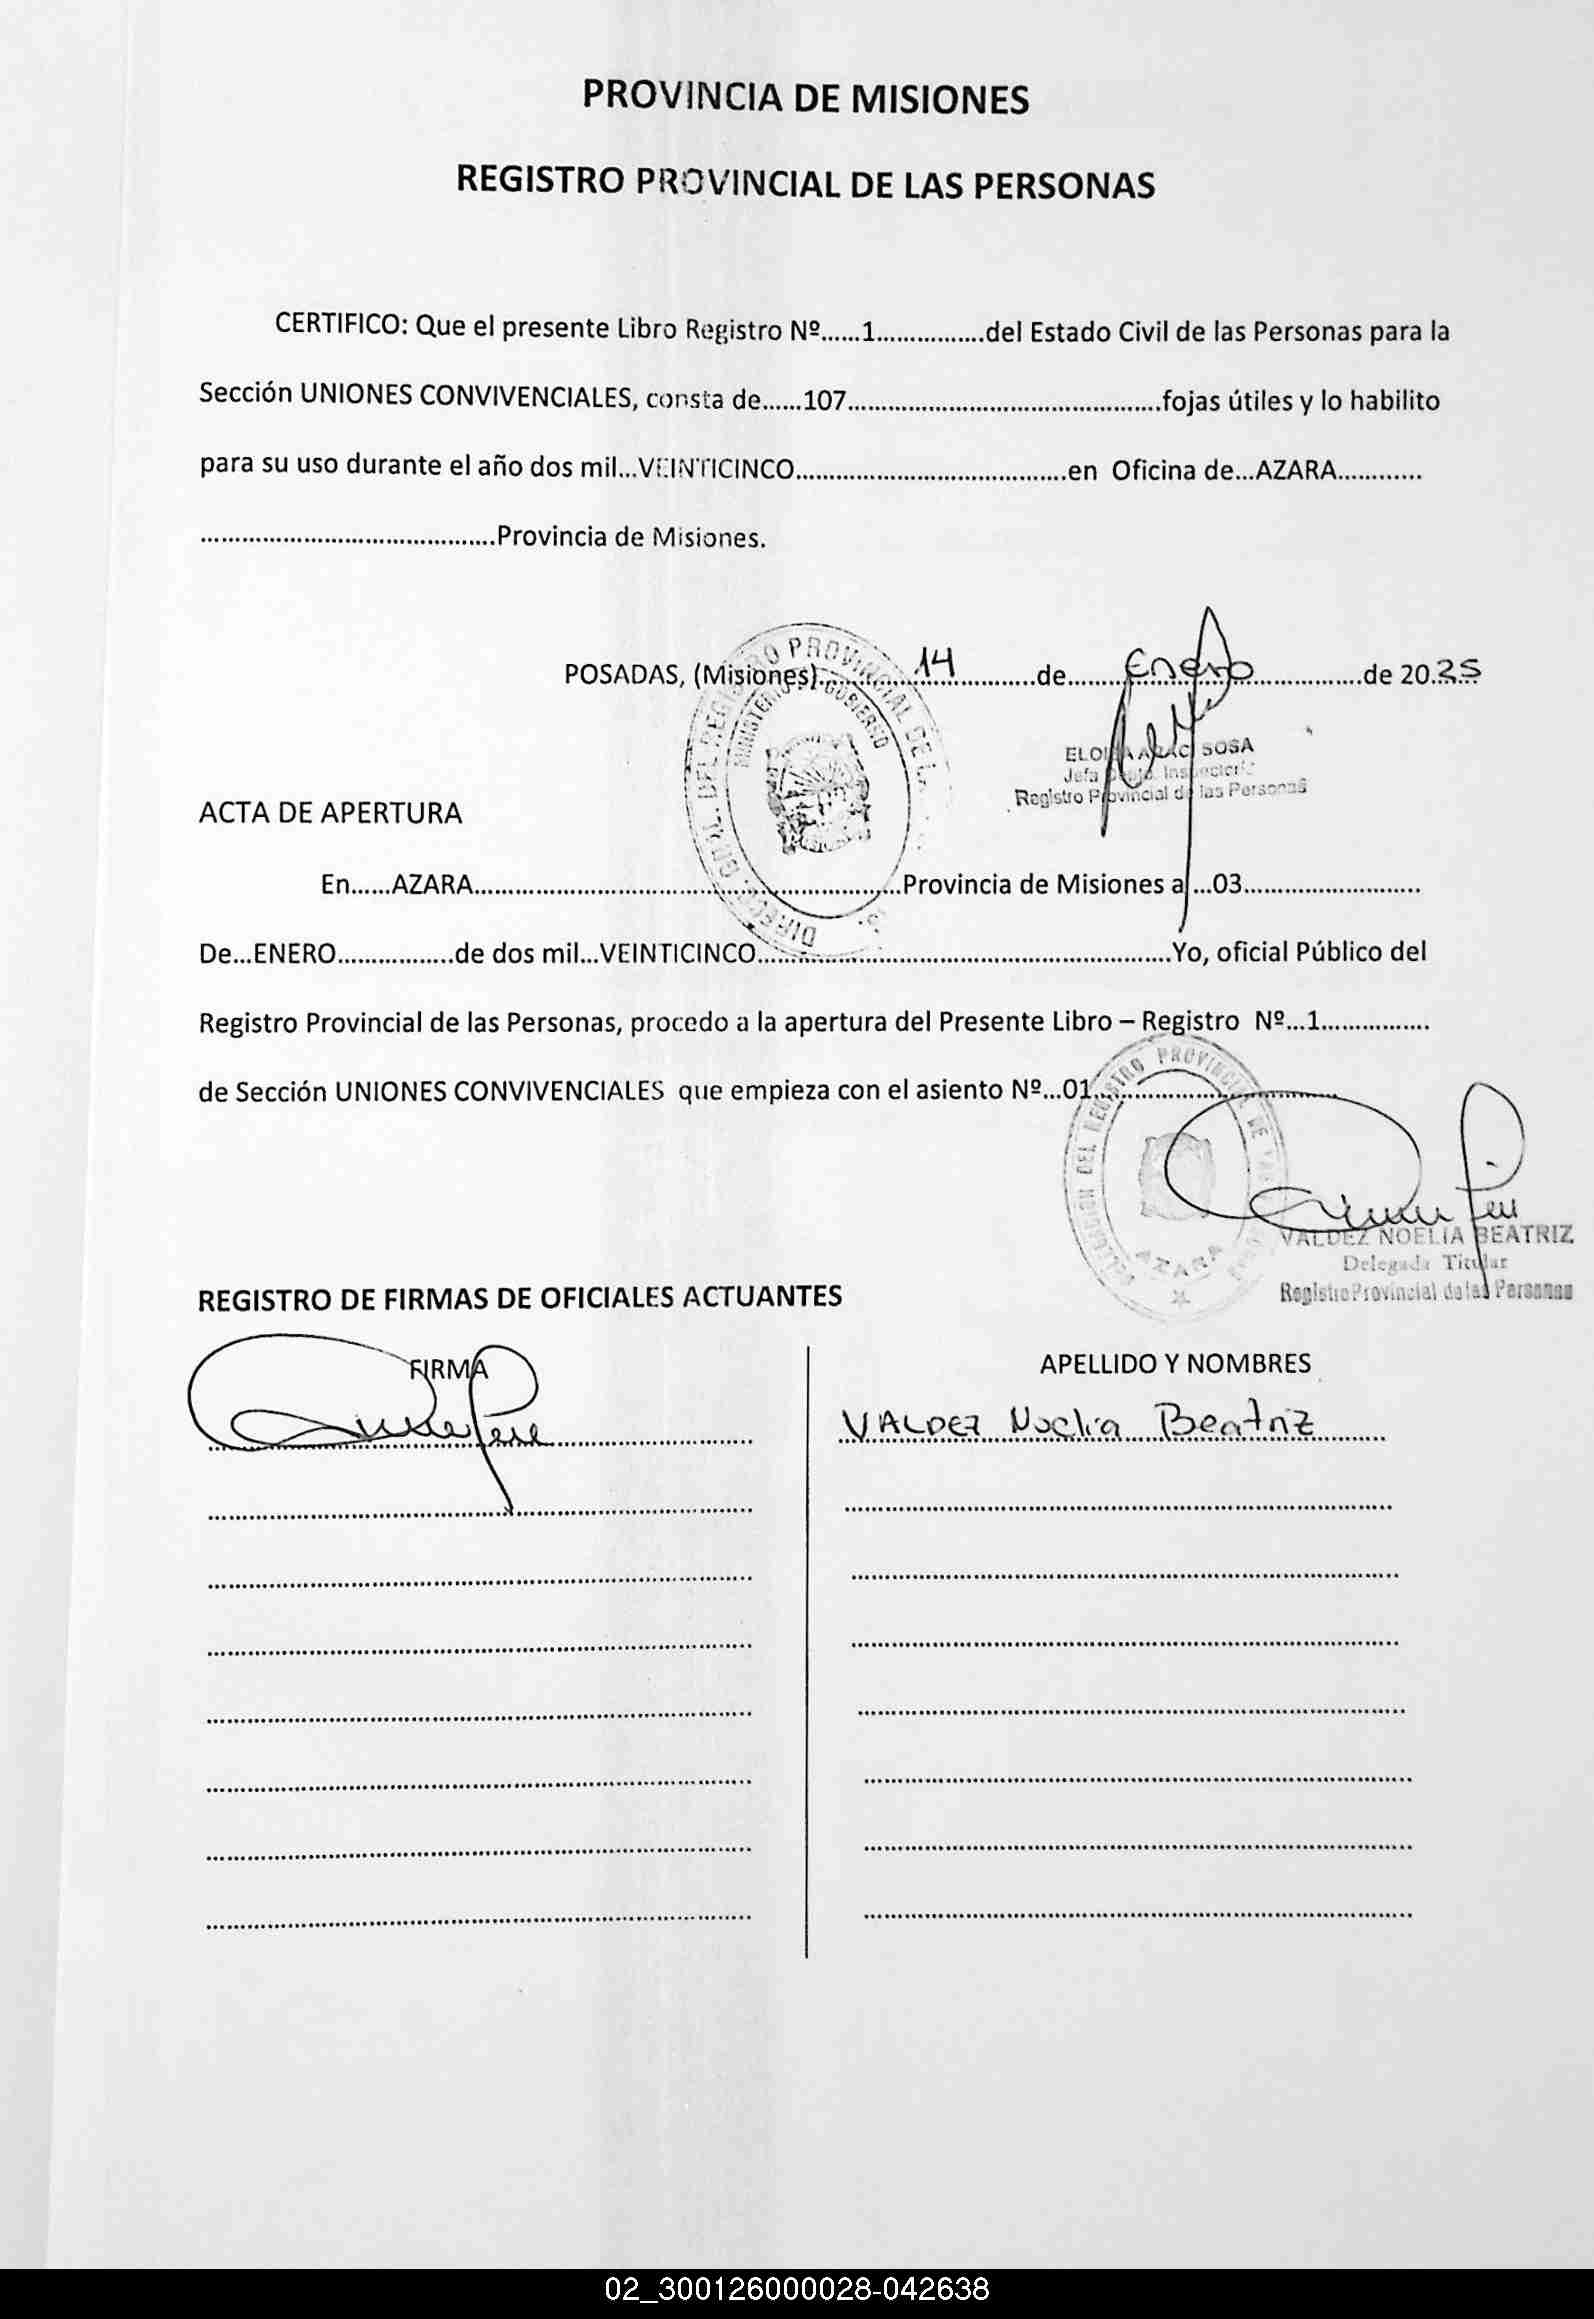 PROVINCIA DE MISIONES
REGISTRO PROVINCIAL DE LAS PERSONAS
CERTIFICO: Que el presente Libro Registro Nº......1................del Estado Civil de las Personas para la
Sección UNIONES CONVIVENCIALES, consta de......107..............................................fojas útiles y lo habilito
para su uso durante el año dos mil...VEINTICINCO........................................en Oficina de...AZARA............
...........................................Provincia de Misiones.
POSADAS, (Misiones)..............14............de........Enero................de 20.25
DIRECC. GRAL. DEL REGISTRO PROVINCIAL DE LAS
MINISTERIO DE GOBIERNO
MISIONES
SOSA
Jefa Depto. Inspectoría
Registro Provincial de las Personas
ACTA DE APERTURA
En......AZARA...............................................................Provincia de Misiones a ...03..........................
De...ENERO.................de dos mil...VEINTICINCO.............................................................Yo, oficial Público del
Registro Provincial de las Personas, procedo a la apertura del Presente Libro – Registro Nº...1................
de Sección UNIONES CONVIVENCIALES que empieza con el asiento Nº...01....................................
DELEGACION DEL REGISTRO PROVINCIAL DE LAS
AZARA
VALDEZ NOELIA BEATRIZ
Delegada Titular
Registro Provincial de las Personas
REGISTRO DE FIRMAS DE OFICIALES ACTUANTES
FIRMA
APELLIDO Y NOMBRES
VALDEZ Noelia Beatriz
02_300126000028-042638